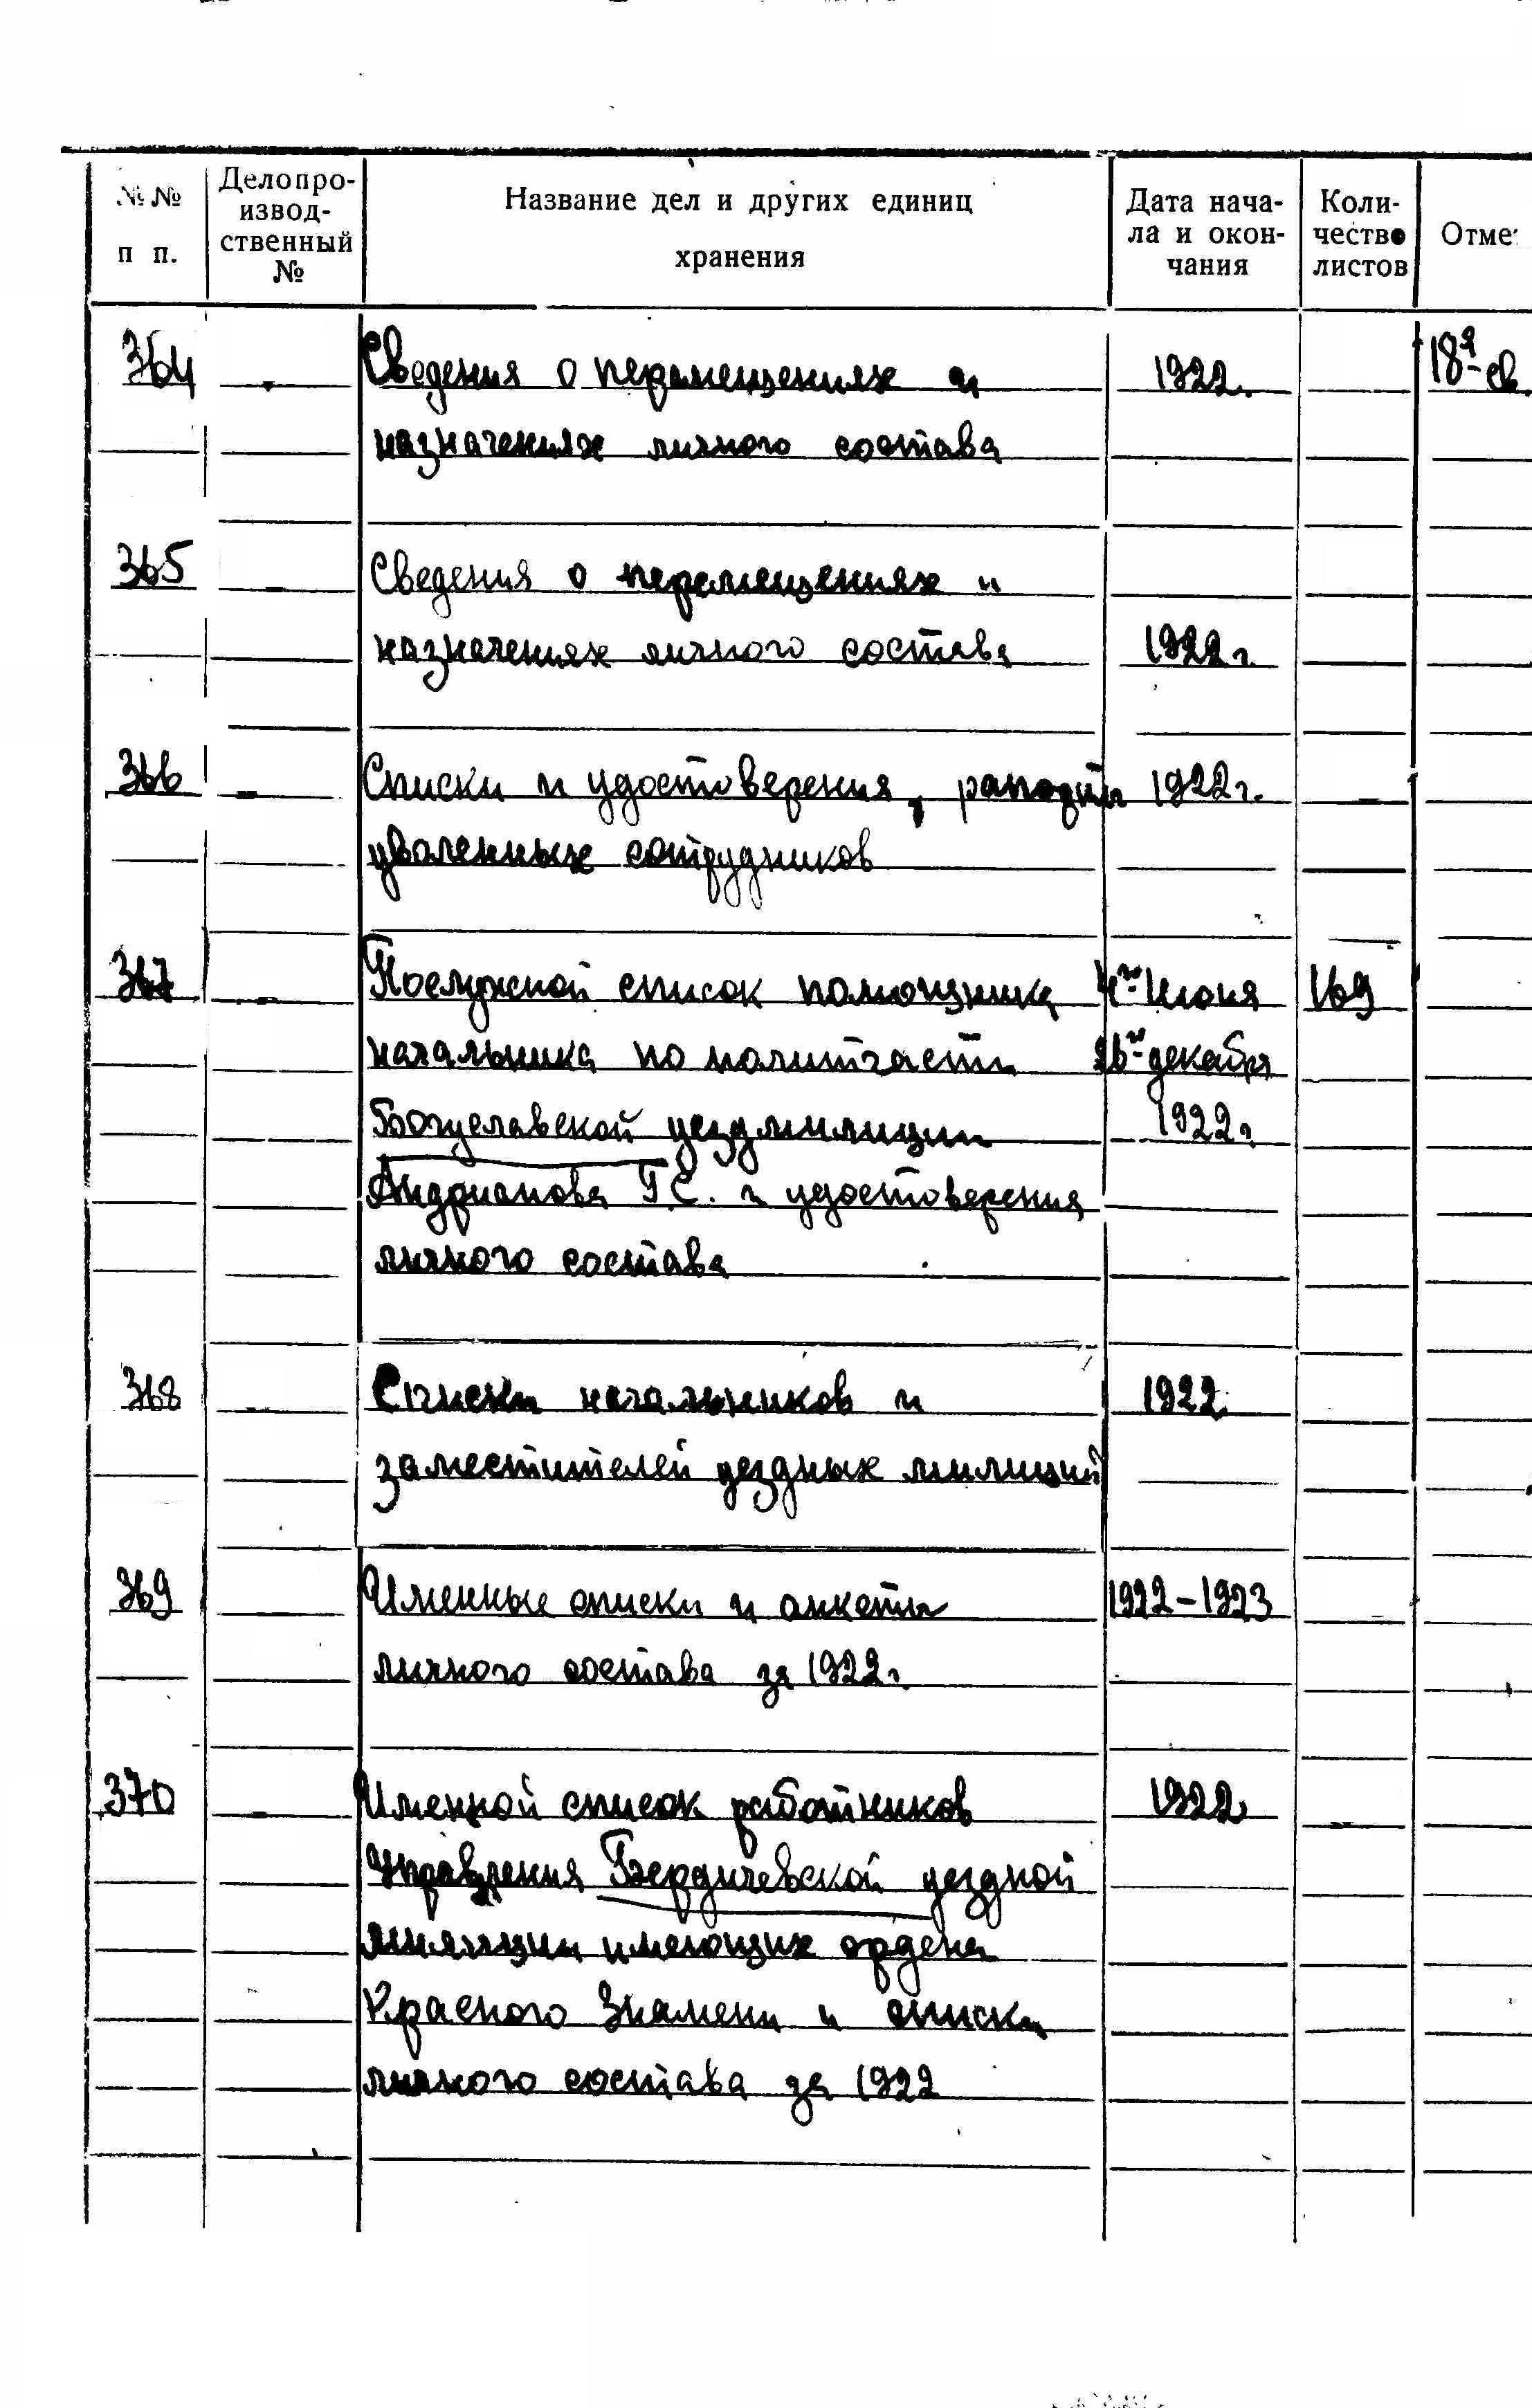 №№ п п.
Делопро-
извод-
ственный
№
Название дел и других единиц
хранения
Дата нача-
ла и окон-
чания
Коли-
чество
листов
Отме
364 - Сведения о перемещениях и 1922.
назначениях личного состава
365 - Сведения о перемещениях и
назначениях личного состава 1922 г.
366 - Списки и удостоверения, рапорты 1922 г.
уволенных сотрудников
367 Послужной список помощника 4го Июня 169
начальника по политчасти 26го декабря
Богуславской уездмилиции 1922 г.
Андрианова Г.С. и удостоверения
личного состава
368 - Списки начальников и 1922
заместителей уездных милиций
369 Именные списки и анкеты 1922-1923
личного состава за 1922 г.
370 - Именной список работников 1922
Управления Бердичевской уездной
милиции имеющих ордена
Красного Знамени и списки
личного состава за 1922